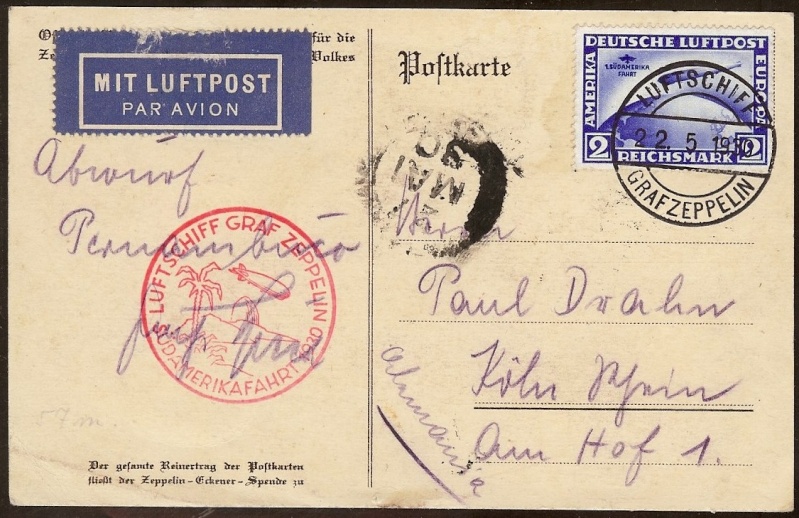 für die
Volkes
MIT LUFTPOST
PAR AVION
Postkarte
DEUTSCHE LUFTPOST
AMERIKA
EUROPA
1. SÜDAMERIKA
FAHRT
2 REICHSMARK 2
LUFTSCHIFF
22.5.1930
GRAFZEPPELIN
MAI
Abwurf
Pernambuco
LUFTSCHIFF GRAF ZEPPELIN
SÜDAMERIKAFAHRT 1930
Herrn
Paul Drahn
Köln Rhein
Am Hof 1.
Der gesamte Reinertrag der Postkarten
fließt der Zeppelin-Eckener-Spende zu